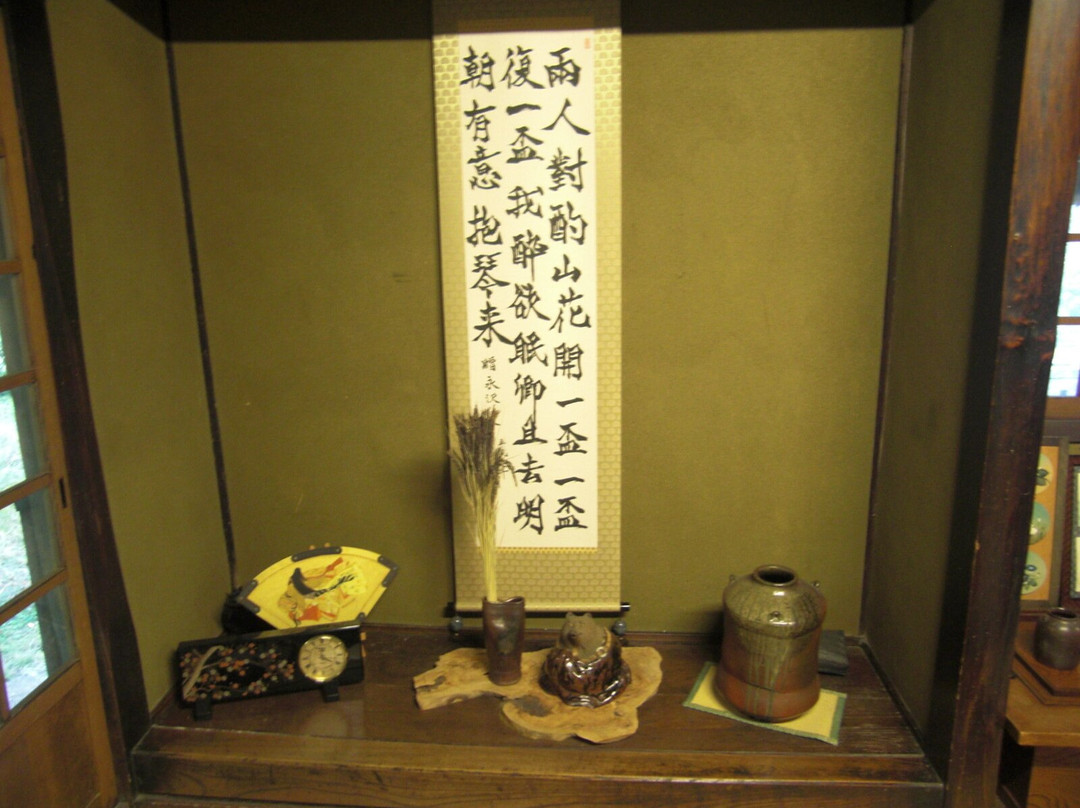 兩人對酌山花開一盃一盃
復一盃我醉欲眠卿且去明
朝有意抱琴来